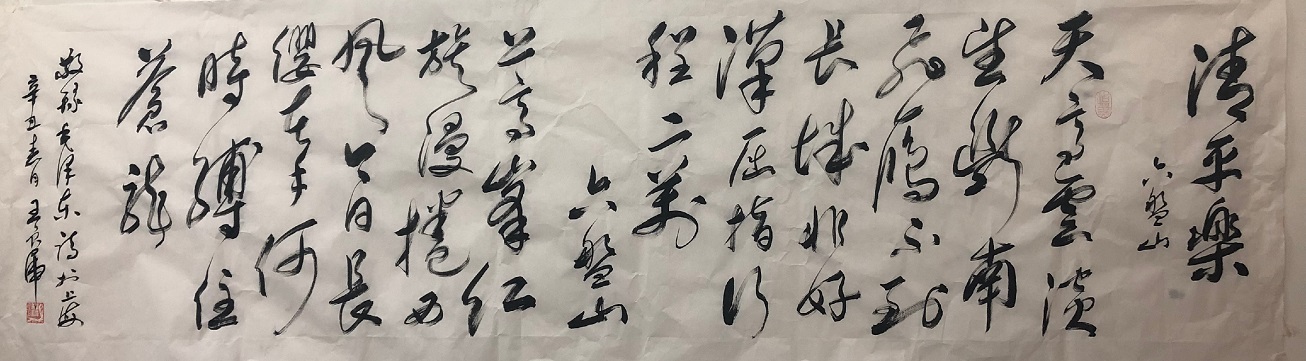 清平樂
六盤山
天高雲淡
望斷南
飛雁不到
長城非好
漢屈指行
程二萬
六盤山
上高峯紅
旗漫捲西
風今日長
纓在手何
時縛住
蒼龍
敬錄毛澤東詩於上海
辛丑春日